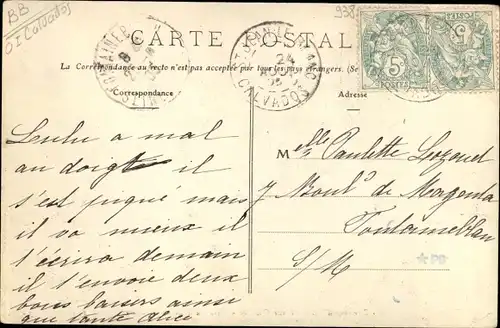 BB
OI Calvados
938
CARTE POSTALE
La Correspondance au recto n'est pas acceptée par tous les pays étrangers. (Se
Correspondance
Adresse
CALVADOS
5c
POSTES
Lulu a mal
au doigt il
s'est piqué mais
il va mieux il
t'écrira demain
il t'envoie deux
bons baisers ainsi
que tante Alice
Melle Paulette
7 Boul'd de Magenta
Fontainebleau
S/M